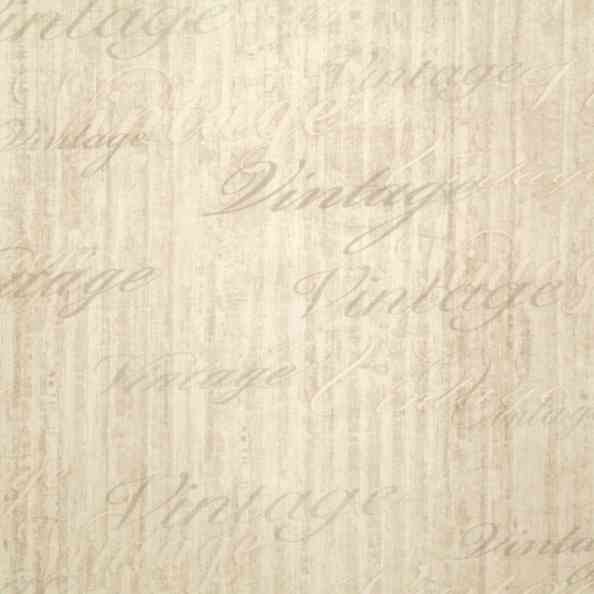 intage
Vintage
Vintage
Vintage
Vintage
intage
Vintage
Vintage
Vintage
Vintage
Vinta